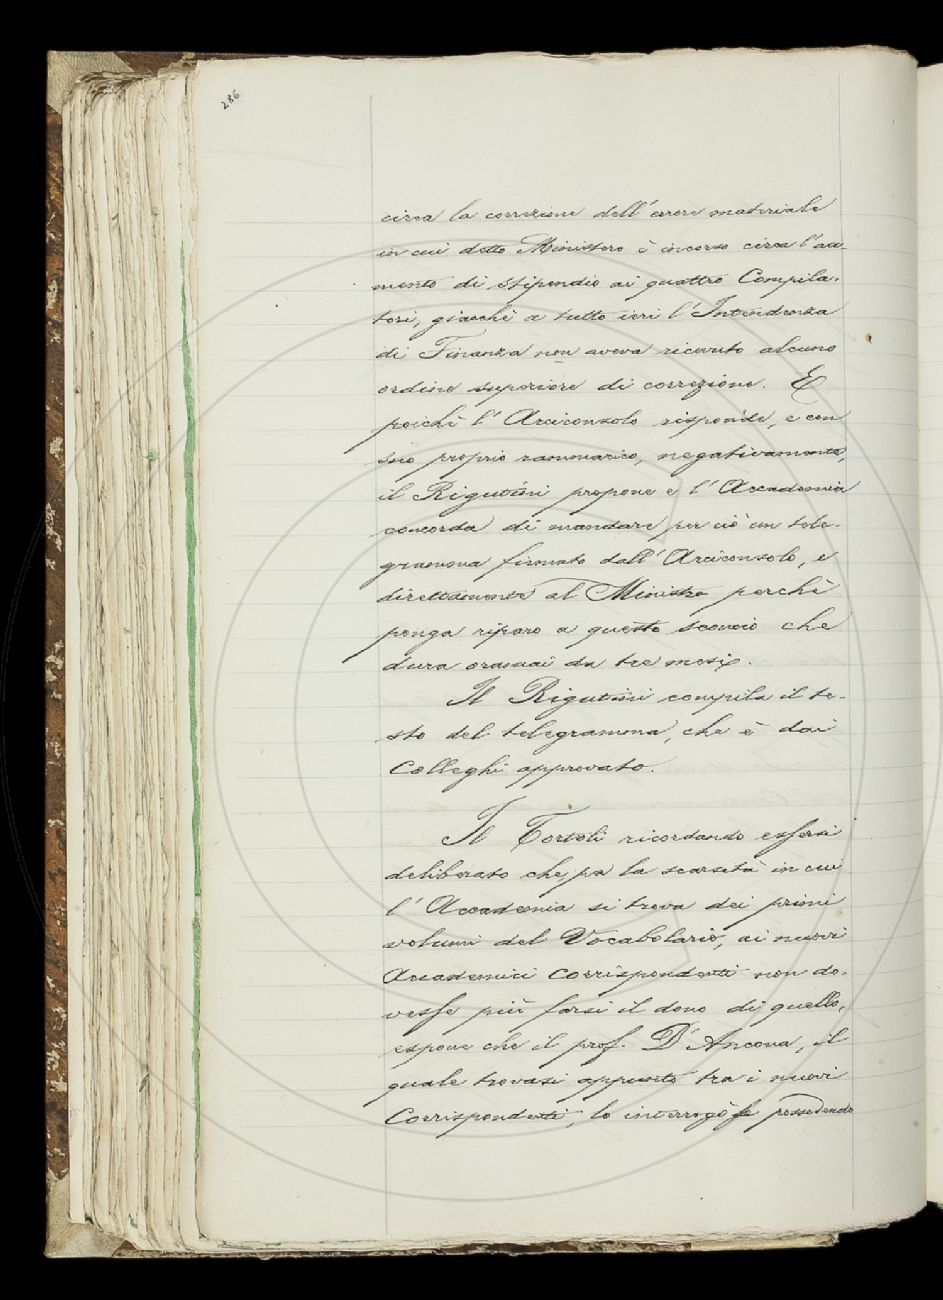 286
circa la correzione dell'errore materiale
in cui detto Ministero è incorso circa l'au-
mento di stipendio ai quattro Compila-
tori, giacchè a tutto ieri l'Intendenza
di Finanza non aveva ricevuto alcuno
ordine superiore di correzione. E
poichè l'Arciconsolo risponde, e con
suo proprio rammarico, negativamente,
il Rigutini propone e l'Accademia
concorda di mandare per ciò un tele-
gramma firmato dall'Arciconsolo, e
direttamente al Ministro perchè
ponga riparo a questo sconcio che
dura oramai da tre mesi.
Il Rigutini compila il te-
sto del telegramma, che è dai
Colleghi approvato.
Il Tortoli ricordando essersi
deliberato che, per la scarsità in cui
l'Accademia si trova dei primi
volumi del Vocabolario, ai nuovi
Accademici corrispondenti non do-
vesse più farsi il dono di quello,
espone che il prof. D'Ancona, il
quale trovasi appunto tra i nuovi
Corrispondenti, lo interrogò se possedendo